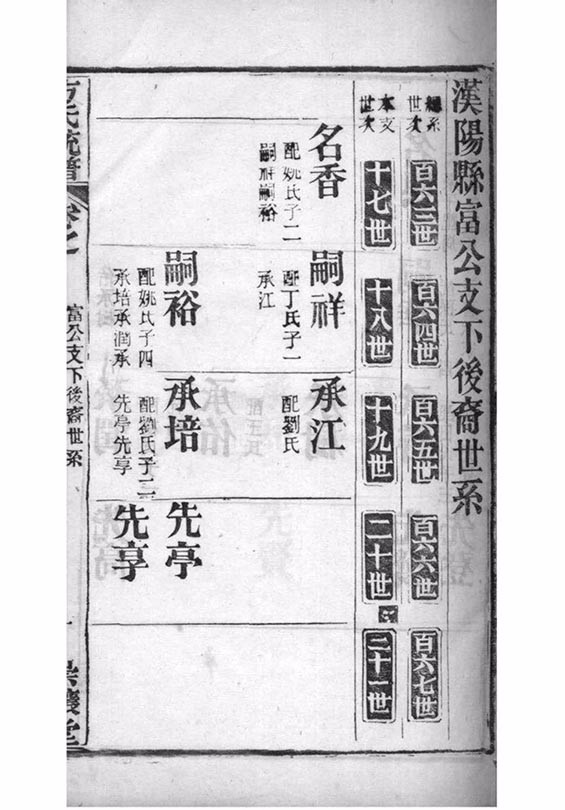 漢陽縣富公支下後裔世系
總系世次
百六三世
百六四世
百六五世
百六六世
百六七世
本支世次
十七世
十八世
十九世
二十世
二十一世
名香
配姚氏子二
嗣祥嗣裕
嗣祥
配丁氏子一
承江
嗣裕
配姚氏子四
承培承潤承
承江
配劉氏
承培
配劉氏子二
先亭先享
先亭
先享
方氏統譜
富公支下後裔世系
堂